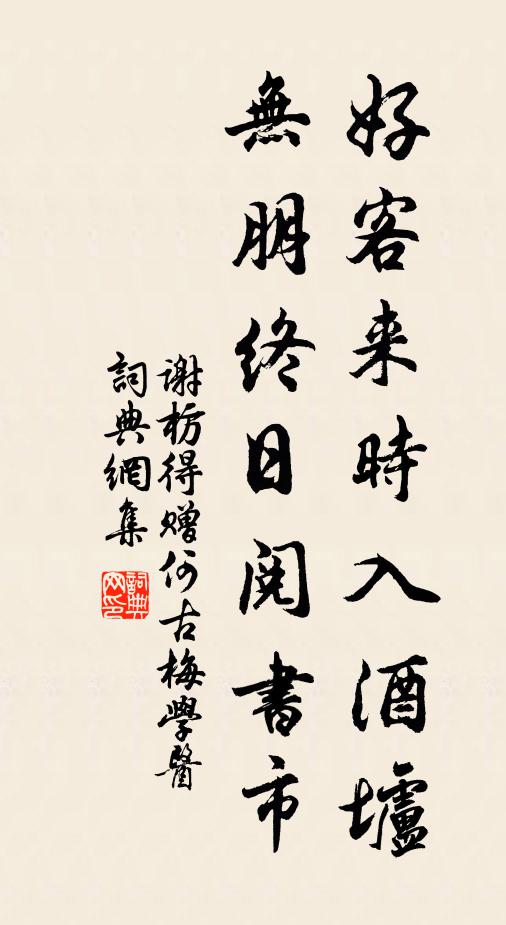 好客来時入酒壚
無朋終日閱書市
謝枋得贈何古梅學醫
詞典網集
詞典网印